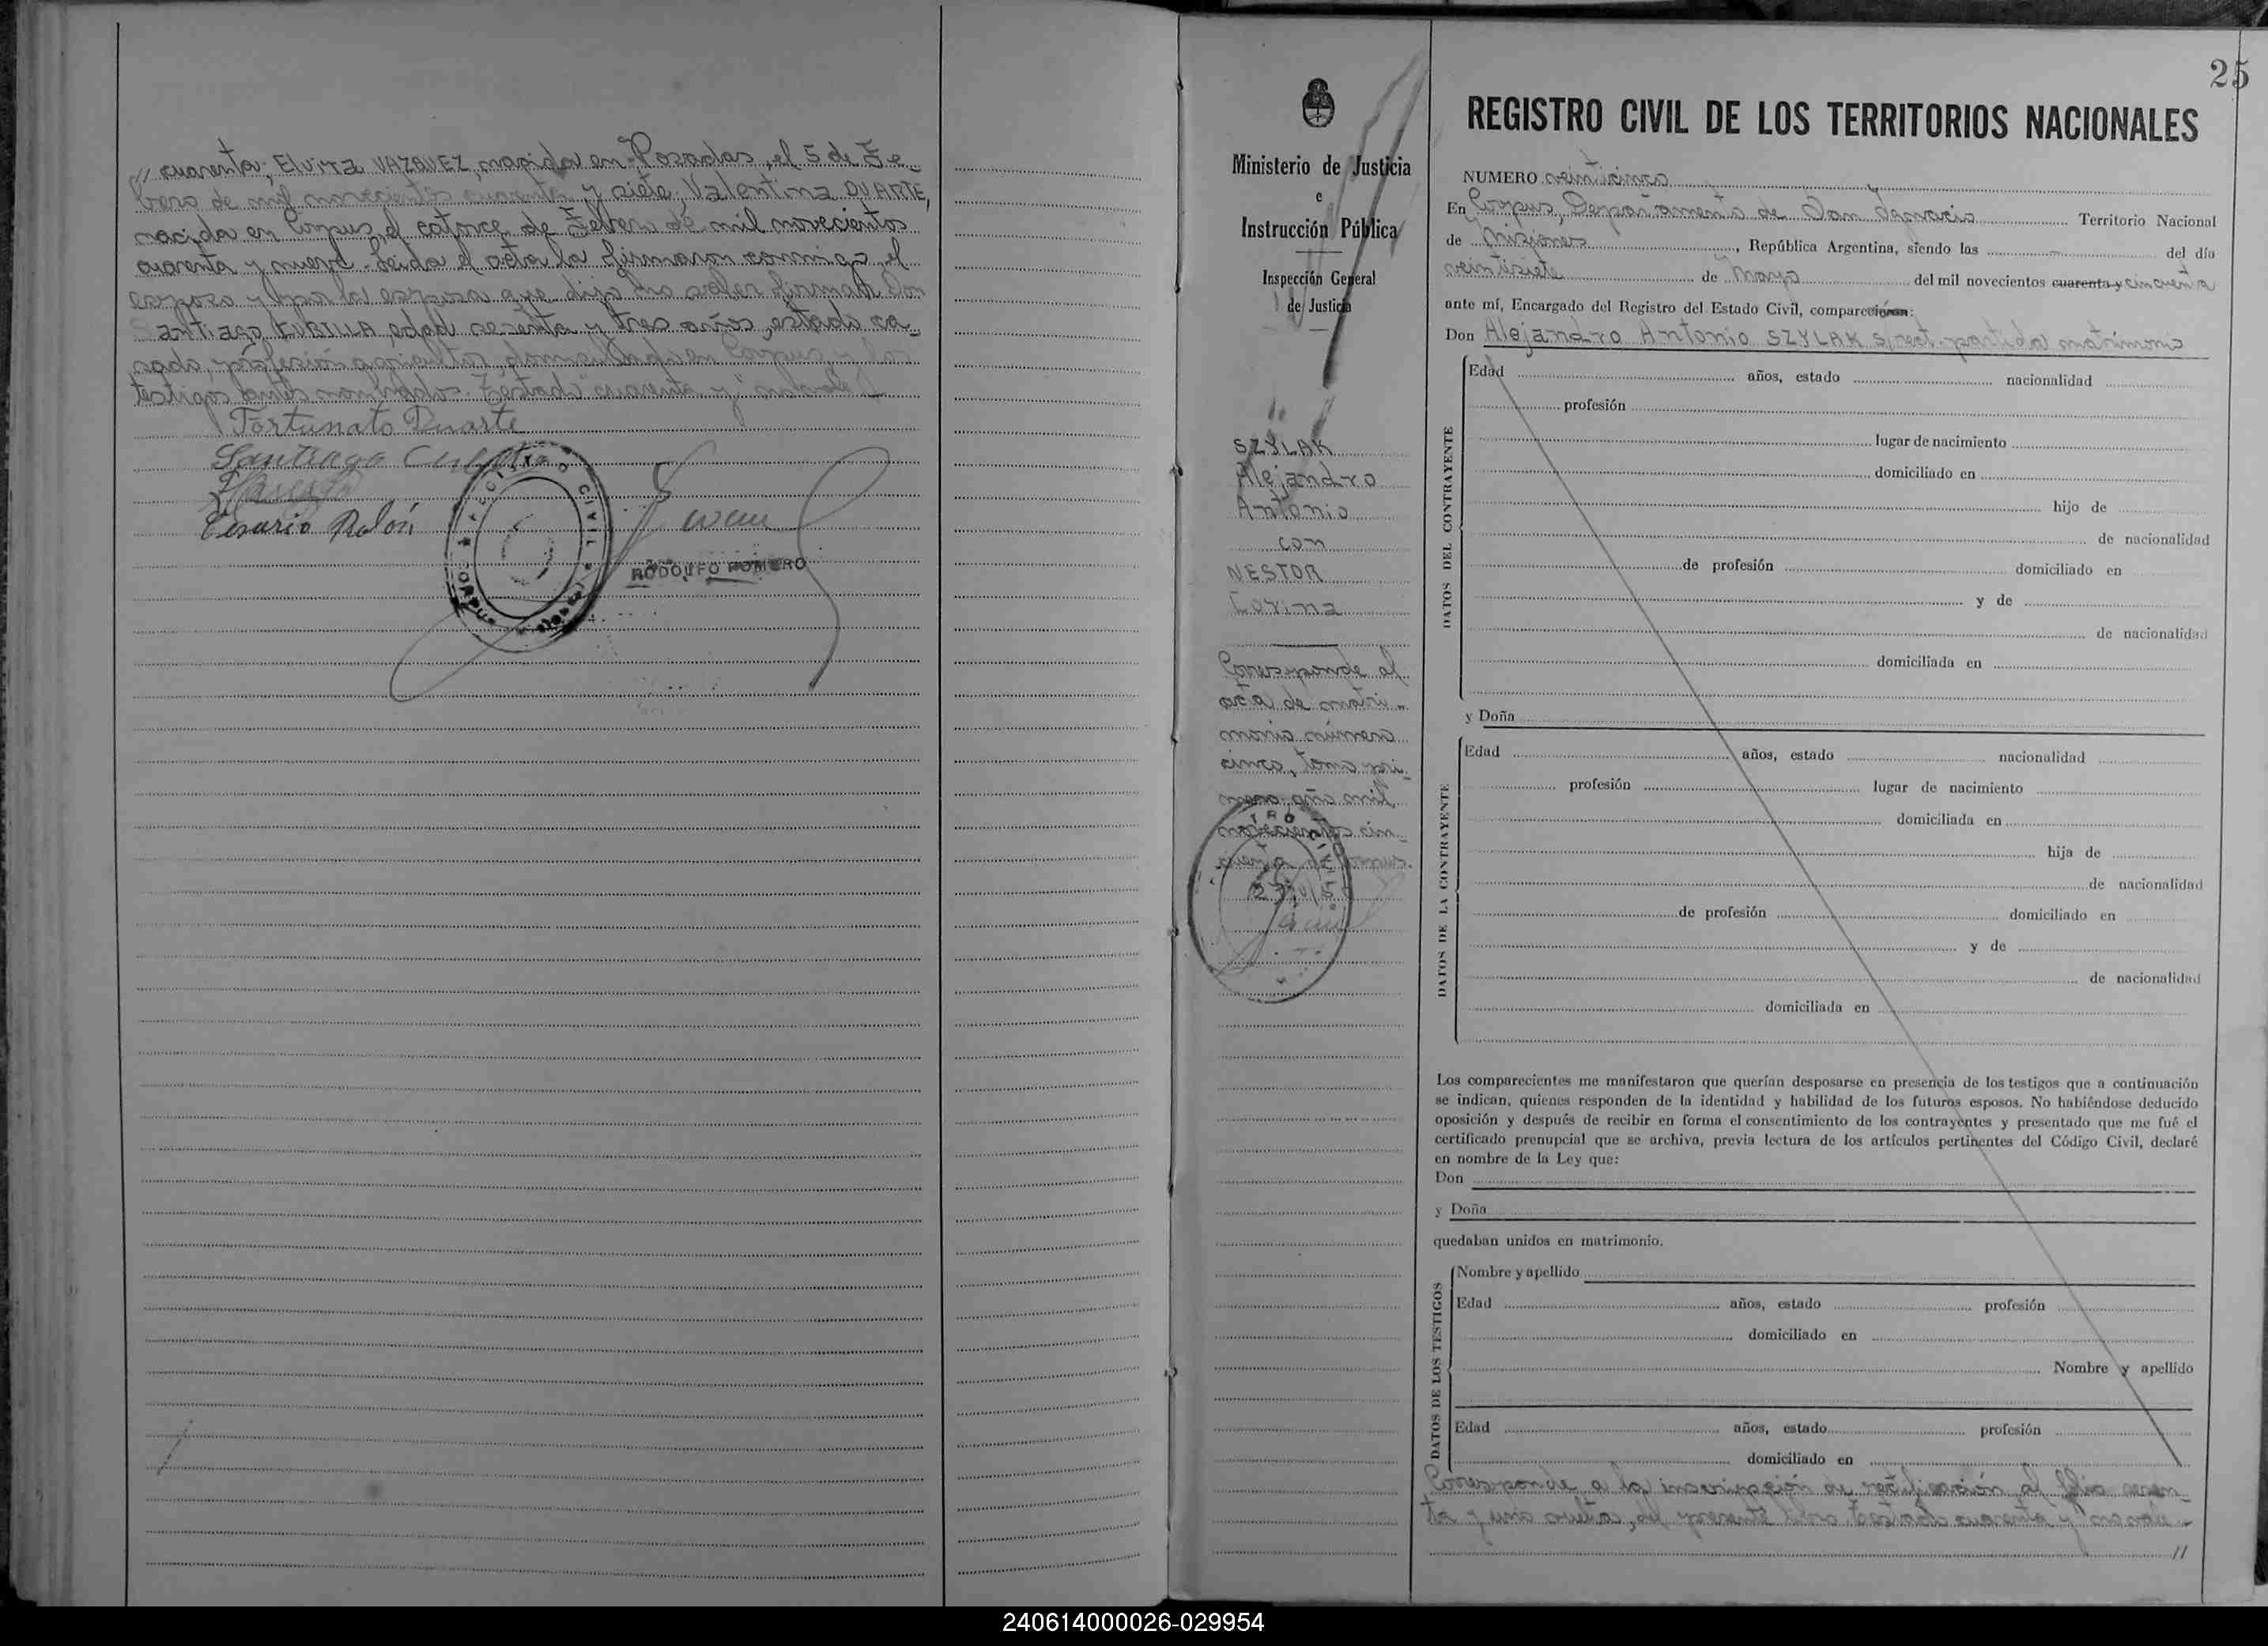 // cuarenta; Elvira VAZQUEZ, nacida en Posadas, el 5 de Fe-
brero de mil novecientos cuarenta y siete; Valentina DUARTE,
nacida en Corpus, el catorce de Febrero de mil novecientos
cuarenta y nueve. Leida el acta la firmaron conmigo el
esposo y por la esposa que dijo no saber firmar Don
Santiago edad sesenta y tres años, estado ca-
sado, profesión agricultor, domiciliado en Corpus y los
testigos antes nombrados. Testado "cuarenta y"
Fortunato Duarte
Santiago
Cesario Rolón
REGISTRO CIVIL
CORPUS
RODOLFO ROMERO
Ministerio de Justicia
e
Instrucción Pública
Inspección General
de Justicia
SZYLAK
Alejandro
Antonio
con
NESTOR
Corresponde al
acta de matri-
monio número
cinco, tomo pri-
mero, año mil
novecientos cin-
cuenta de Corpus.
25
REGISTRO CIVIL DE LOS TERRITORIOS NACIONALES
NUMERO veinticinco
En Corpus, Departamento de San Ignacio Territorio Nacional
de Misiones, República Argentina, siendo las del día
veintisiete de Mayo del mil novecientos cuarenta y cincuenta
ante mí, Encargado del Registro del Estado Civil, comparecieron:
Don Alejandro Antonio SZYLAK s/rect. partida matrimonio
DATOS DEL CONTRAYENTE
Edad años, estado nacionalidad
profesión
lugar de nacimiento
domiciliado en
hijo de
de nacionalidad
de profesión domiciliado en
y de
de nacionalidad
domiciliada en
y Doña
DATOS DE LA CONTRAYENTE
Edad años, estado nacionalidad
profesión lugar de nacimiento
domiciliada en
hija de
de nacionalidad
de profesión domiciliado en
y de
de nacionalidad
domiciliada en
Los comparecientes me manifestaron que querían desposarse en presencia de los testigos que a continuación
se indican, quienes responden de la identidad y habilidad de los futuros esposos. No habiéndose deducido
oposición y después de recibir en forma el consentimiento de los contrayentes y presentado que me fué el
certificado prenupcial que se archiva, previa lectura de los artículos pertinentes del Código Civil, declaré
en nombre de la Ley que:
Don
y Doña
quedaban unidos en matrimonio.
DATOS DE LOS TESTIGOS
Nombre y apellido
Edad años, estado profesión
domiciliado en
Nombre y apellido
Edad años, estado profesión
domiciliado en
Corresponde a la inscripción de rectificación al folio sesen-
ta y uno vuelta, del presente libro. Testado "cuarenta y"
//
240614000026-029954